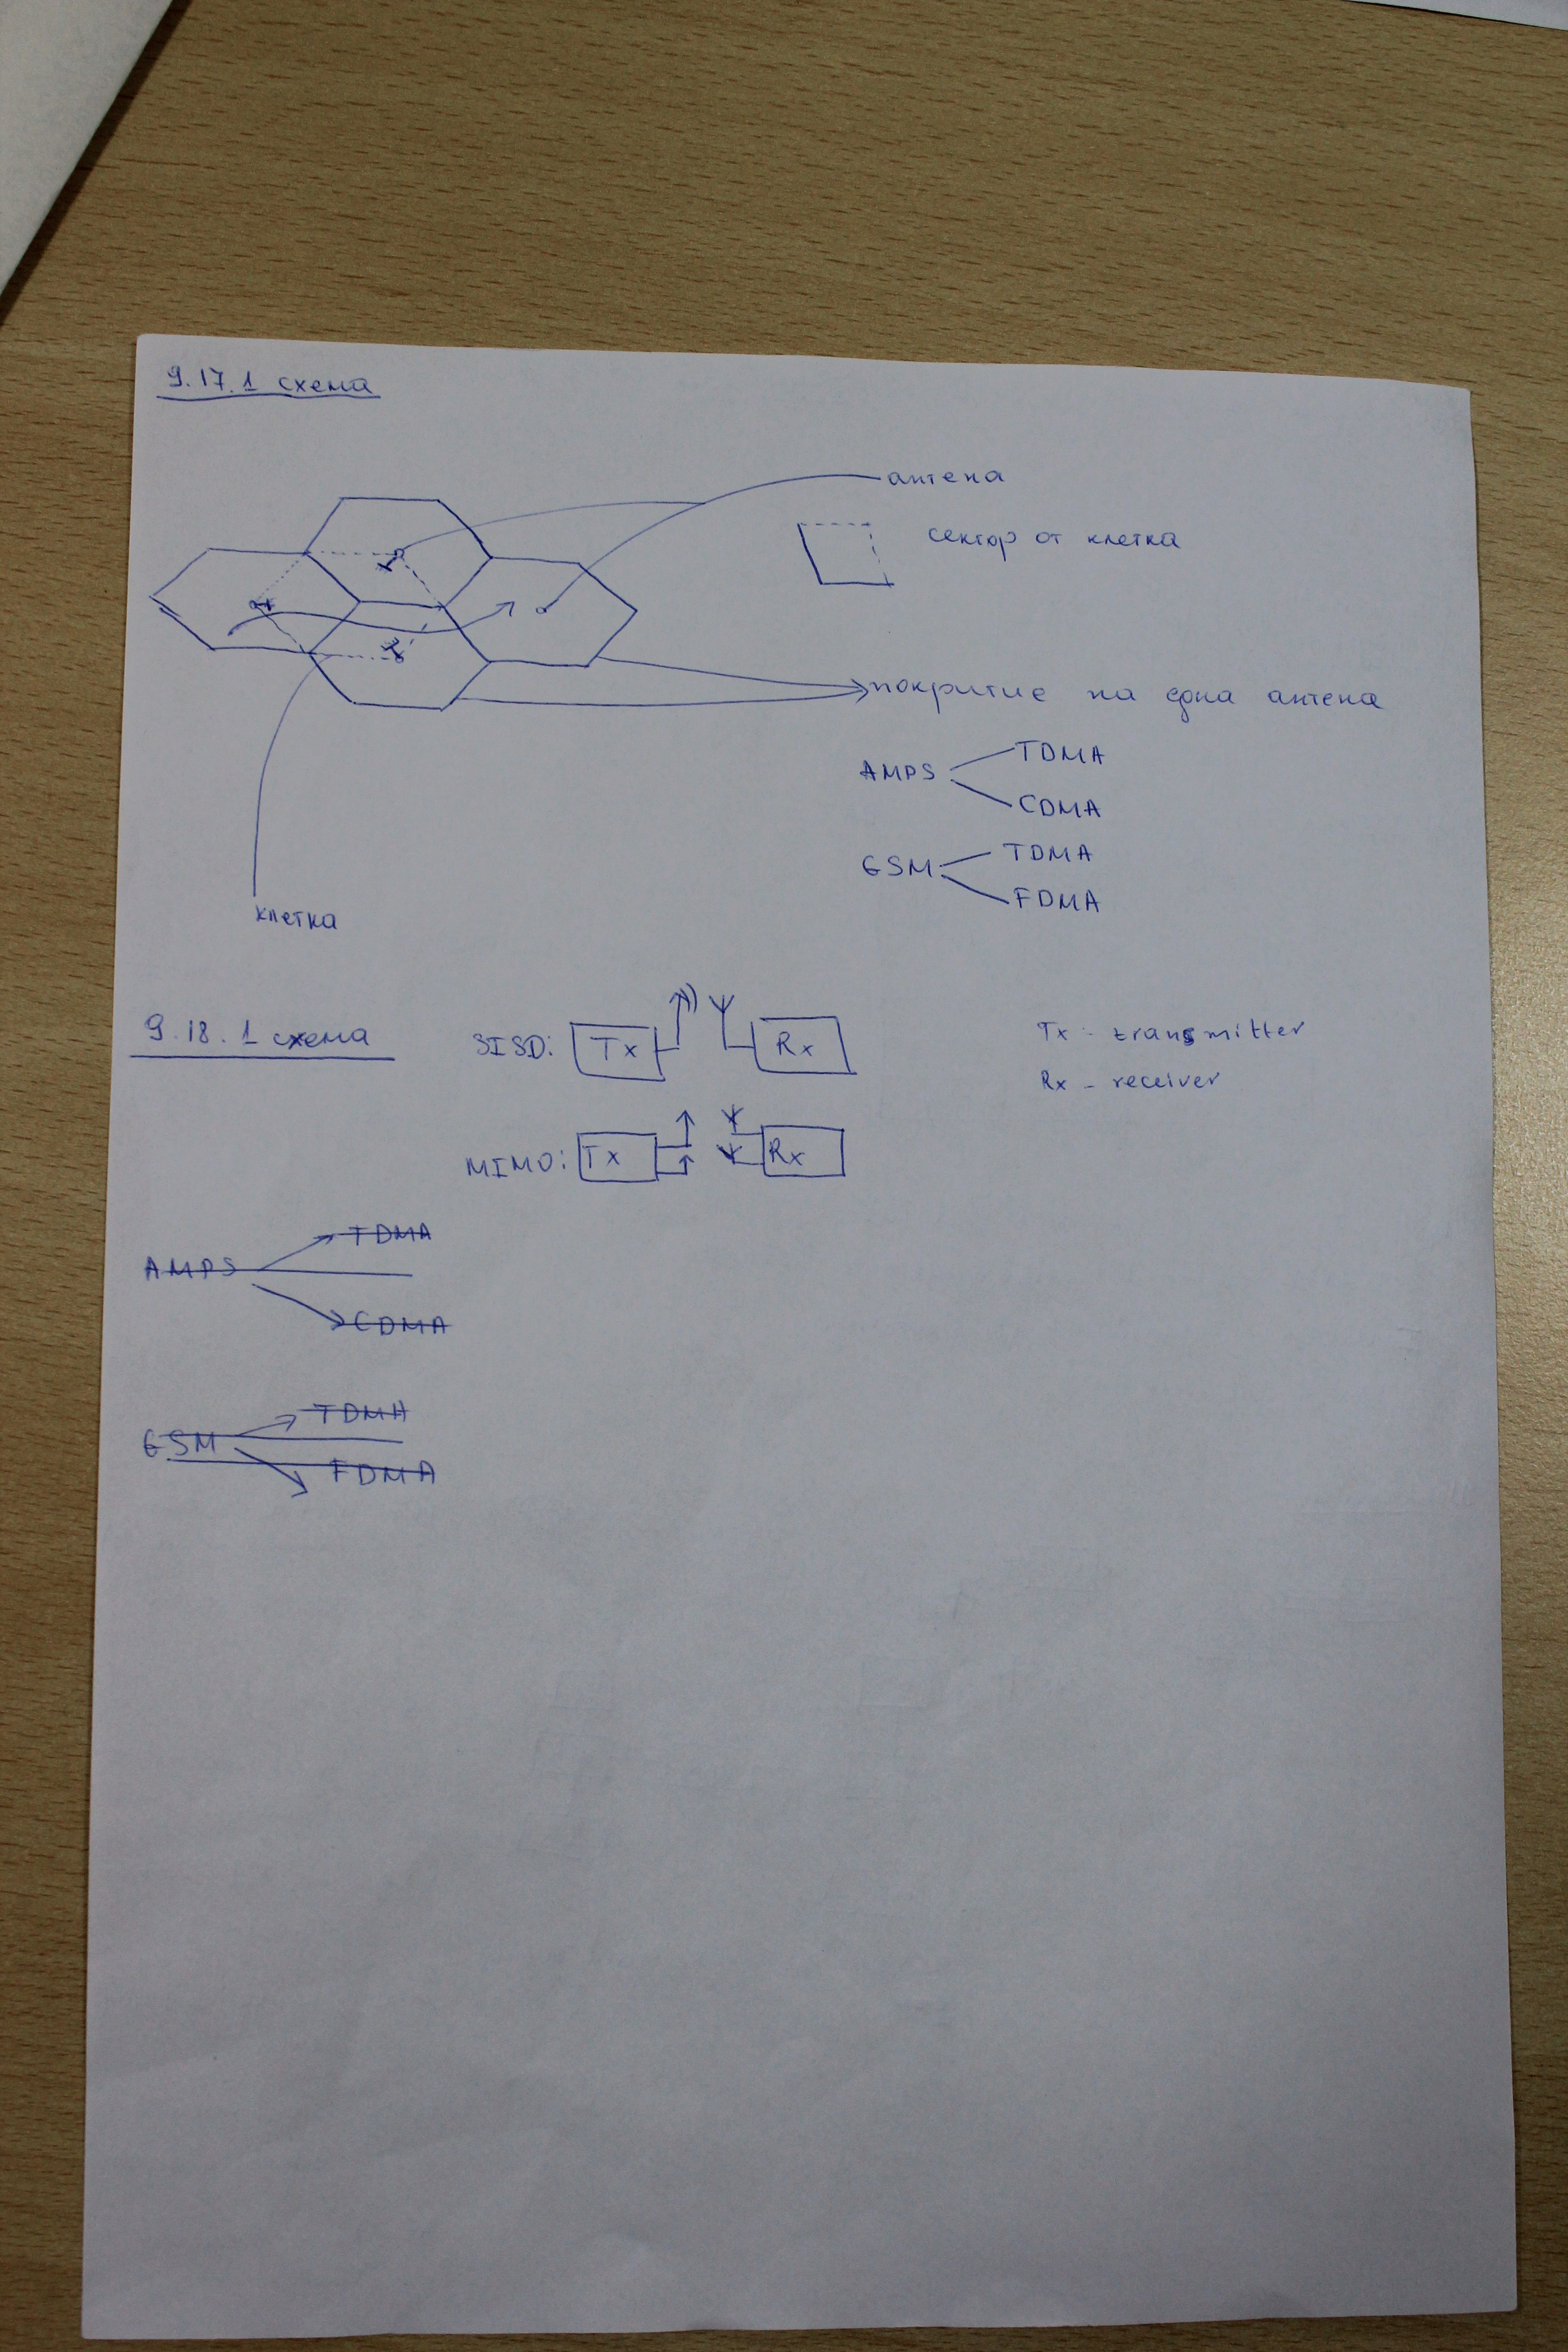 9.17.1 схема
антена
сектор от клетка
покритие на една антена
AMPS
TDMA
CDMA
GSM
TDMA
FDMA
клетка
9.18.1 схема
SISO:
Tx
Rx
Tx - transmitter
Rx - receiver
MIMO:
Tx
Rx
AMPS
TDMA
CDMA
GSM
TDMA
FDMA